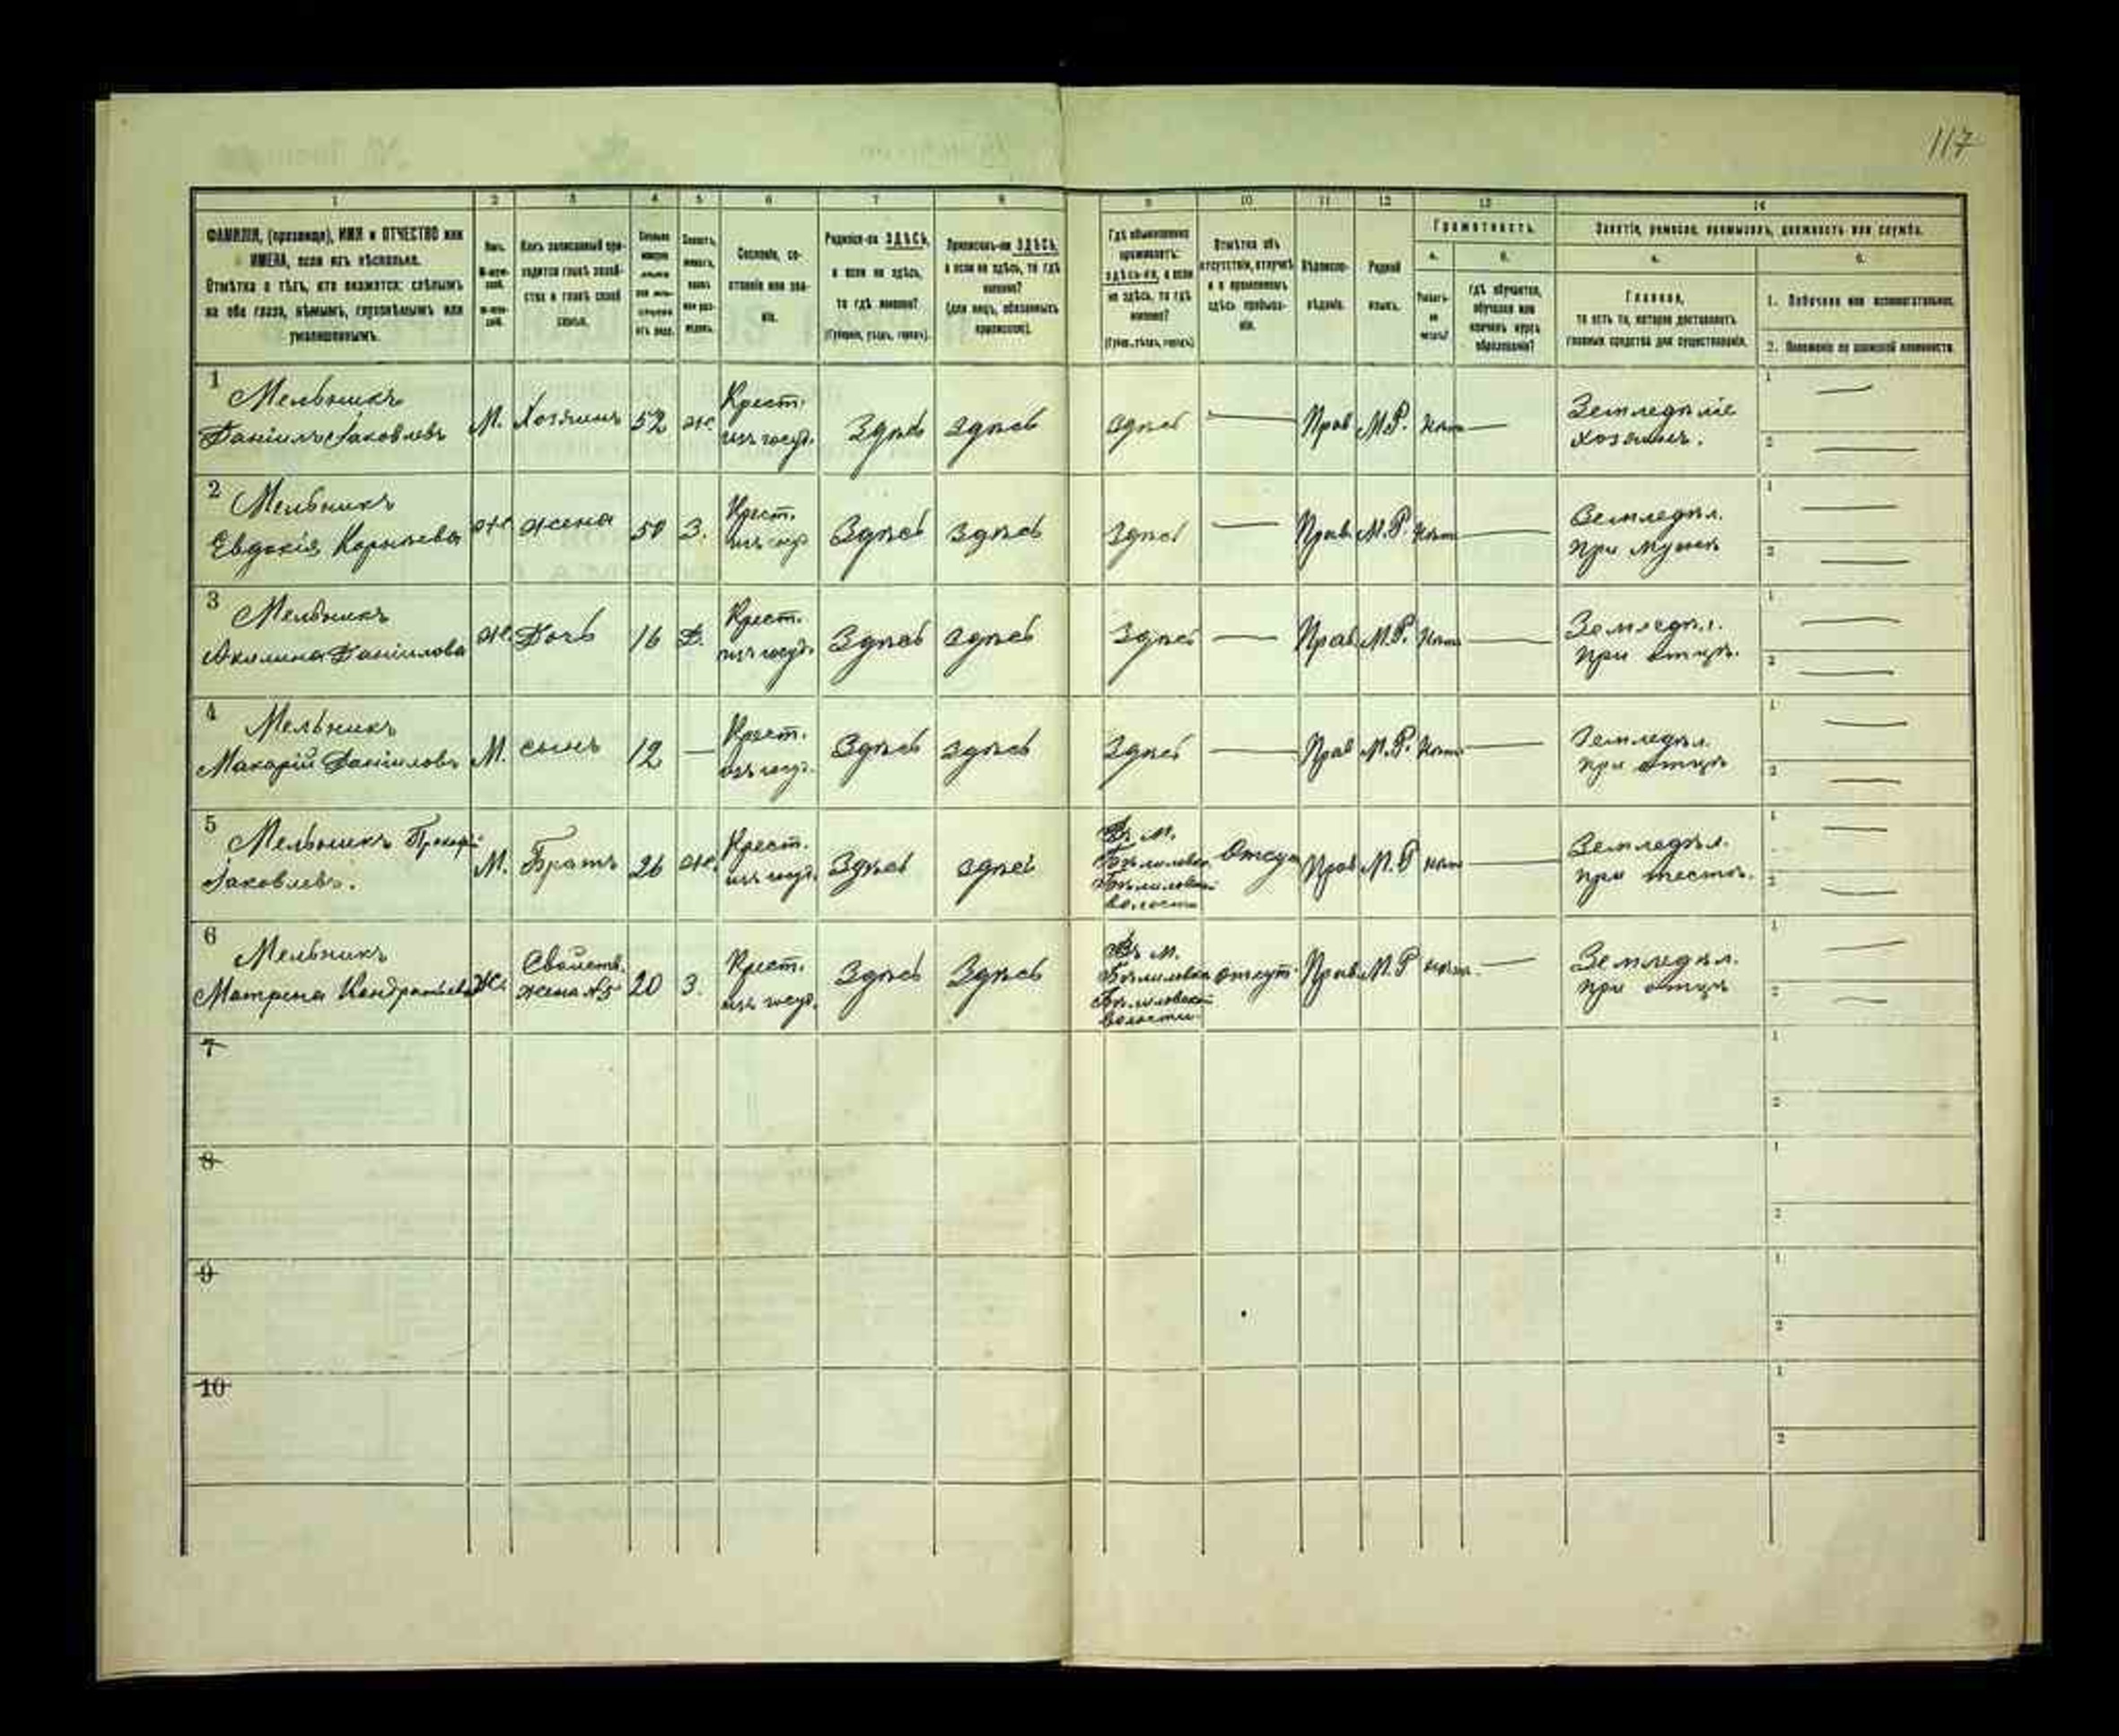 117
1 2 3 4 5 6 7 8 9 10 11 12 13 14
ФАМИЛІЯ, (прозвище), ИМЯ и ОТЧЕСТВО или
ИМЕНА, если ихъ нѣсколько.
Отмѣтка о тѣхъ, кто окажется: слѣпымъ
на оба глаза, нѣмымъ, глухонѣмымъ или
умалишеннымъ.
Полъ.
Какъ записанный при-
ходится главѣ хозяй-
ства и главѣ своей
семьи.
Сословіе, со-
стояніе или зва-
ніе.
Родился-ли ЗДѢСЬ,
а если не здѣсь,
то гдѣ именно?
(Губернія, уѣздъ, городъ).
Приписанъ-ли ЗДѢСЬ,
а если не здѣсь, то гдѣ
именно?
(для лицъ, обязанныхъ
припискою).
Гдѣ обыкновенно
проживаетъ:
здѣсь-ли, а если
не здѣсь, то гдѣ
именно?
(Губер., уѣздъ, городъ).
Отмѣтка объ
отсутствіи, отлучкѣ
и о временномъ
здѣсь пребыва-
ніи.
Вѣроиспо-
вѣданіе.
Родной
языкъ.
Грамотность.
а. б.
Умѣетъ-
ли
читать?
гдѣ обучается,
обучался или
кончилъ курсъ
образованія?
Занятіе, ремесло, промыселъ, должность или служба.
а. б.
Главное,
то есть то, которое доставляетъ
главныя средства для существованія.
1. Побочное или вспомогательное.
2. Положеніе по воинской повинности.
1 Мельникъ
Даніилъ Іаковлевъ М. Хозяинъ 52 Ж. Крест. изъ госуд. Здѣсь здѣсь здѣсь — Прав М.Р. нѣтъ — Земледѣліе хозяинъ. 1 — 2 —
2 Мельникъ
Евдокія Корнѣева Ж. жена 50 З. Крест. изъ госуд Здѣсь здѣсь здѣсь — Прав. М.Р. нѣтъ — Земледѣл. при мужѣ 1 — 2 —
3 Мельникъ
Акилина Даніилова Ж. Дочь 16 Д. Крест. изъ госуд. Здѣсь здѣсь здѣсь — Прав М.Р. нѣтъ — Земледѣл. при отцѣ. 1 — 2 —
4 Мельникъ
Макарій Даніиловъ М. сынъ 12 — Крест. изъ госуд. Здѣсь здѣсь Здѣсь — Прав М.Р. нѣтъ — Земледѣл. при отцѣ 1 — 2 —
5 Мельникъ Прокофій
Іаковлевъ. М. Братъ 26 Ж. Крест. изъ госуд. Здѣсь здѣсь Въ м. Бѣлиловкѣ Бѣлиловской волости Отсут Прав М.Р нѣтъ — Земледѣл. при тестѣ. 1 — 2 —
6 Мельникъ
Матрена Кондратьева Ж. Свойств. жена №5 20 З. Крест. изъ госуд. Здѣсь Здѣсь Въ м. Бѣлиловкѣ Бѣлиловской волости отсут. Прав. М.Р нѣтъ — Земледѣл. при отцѣ 1 — 2 —
7 1 2
8 1 2
9 1 2
10 1 2